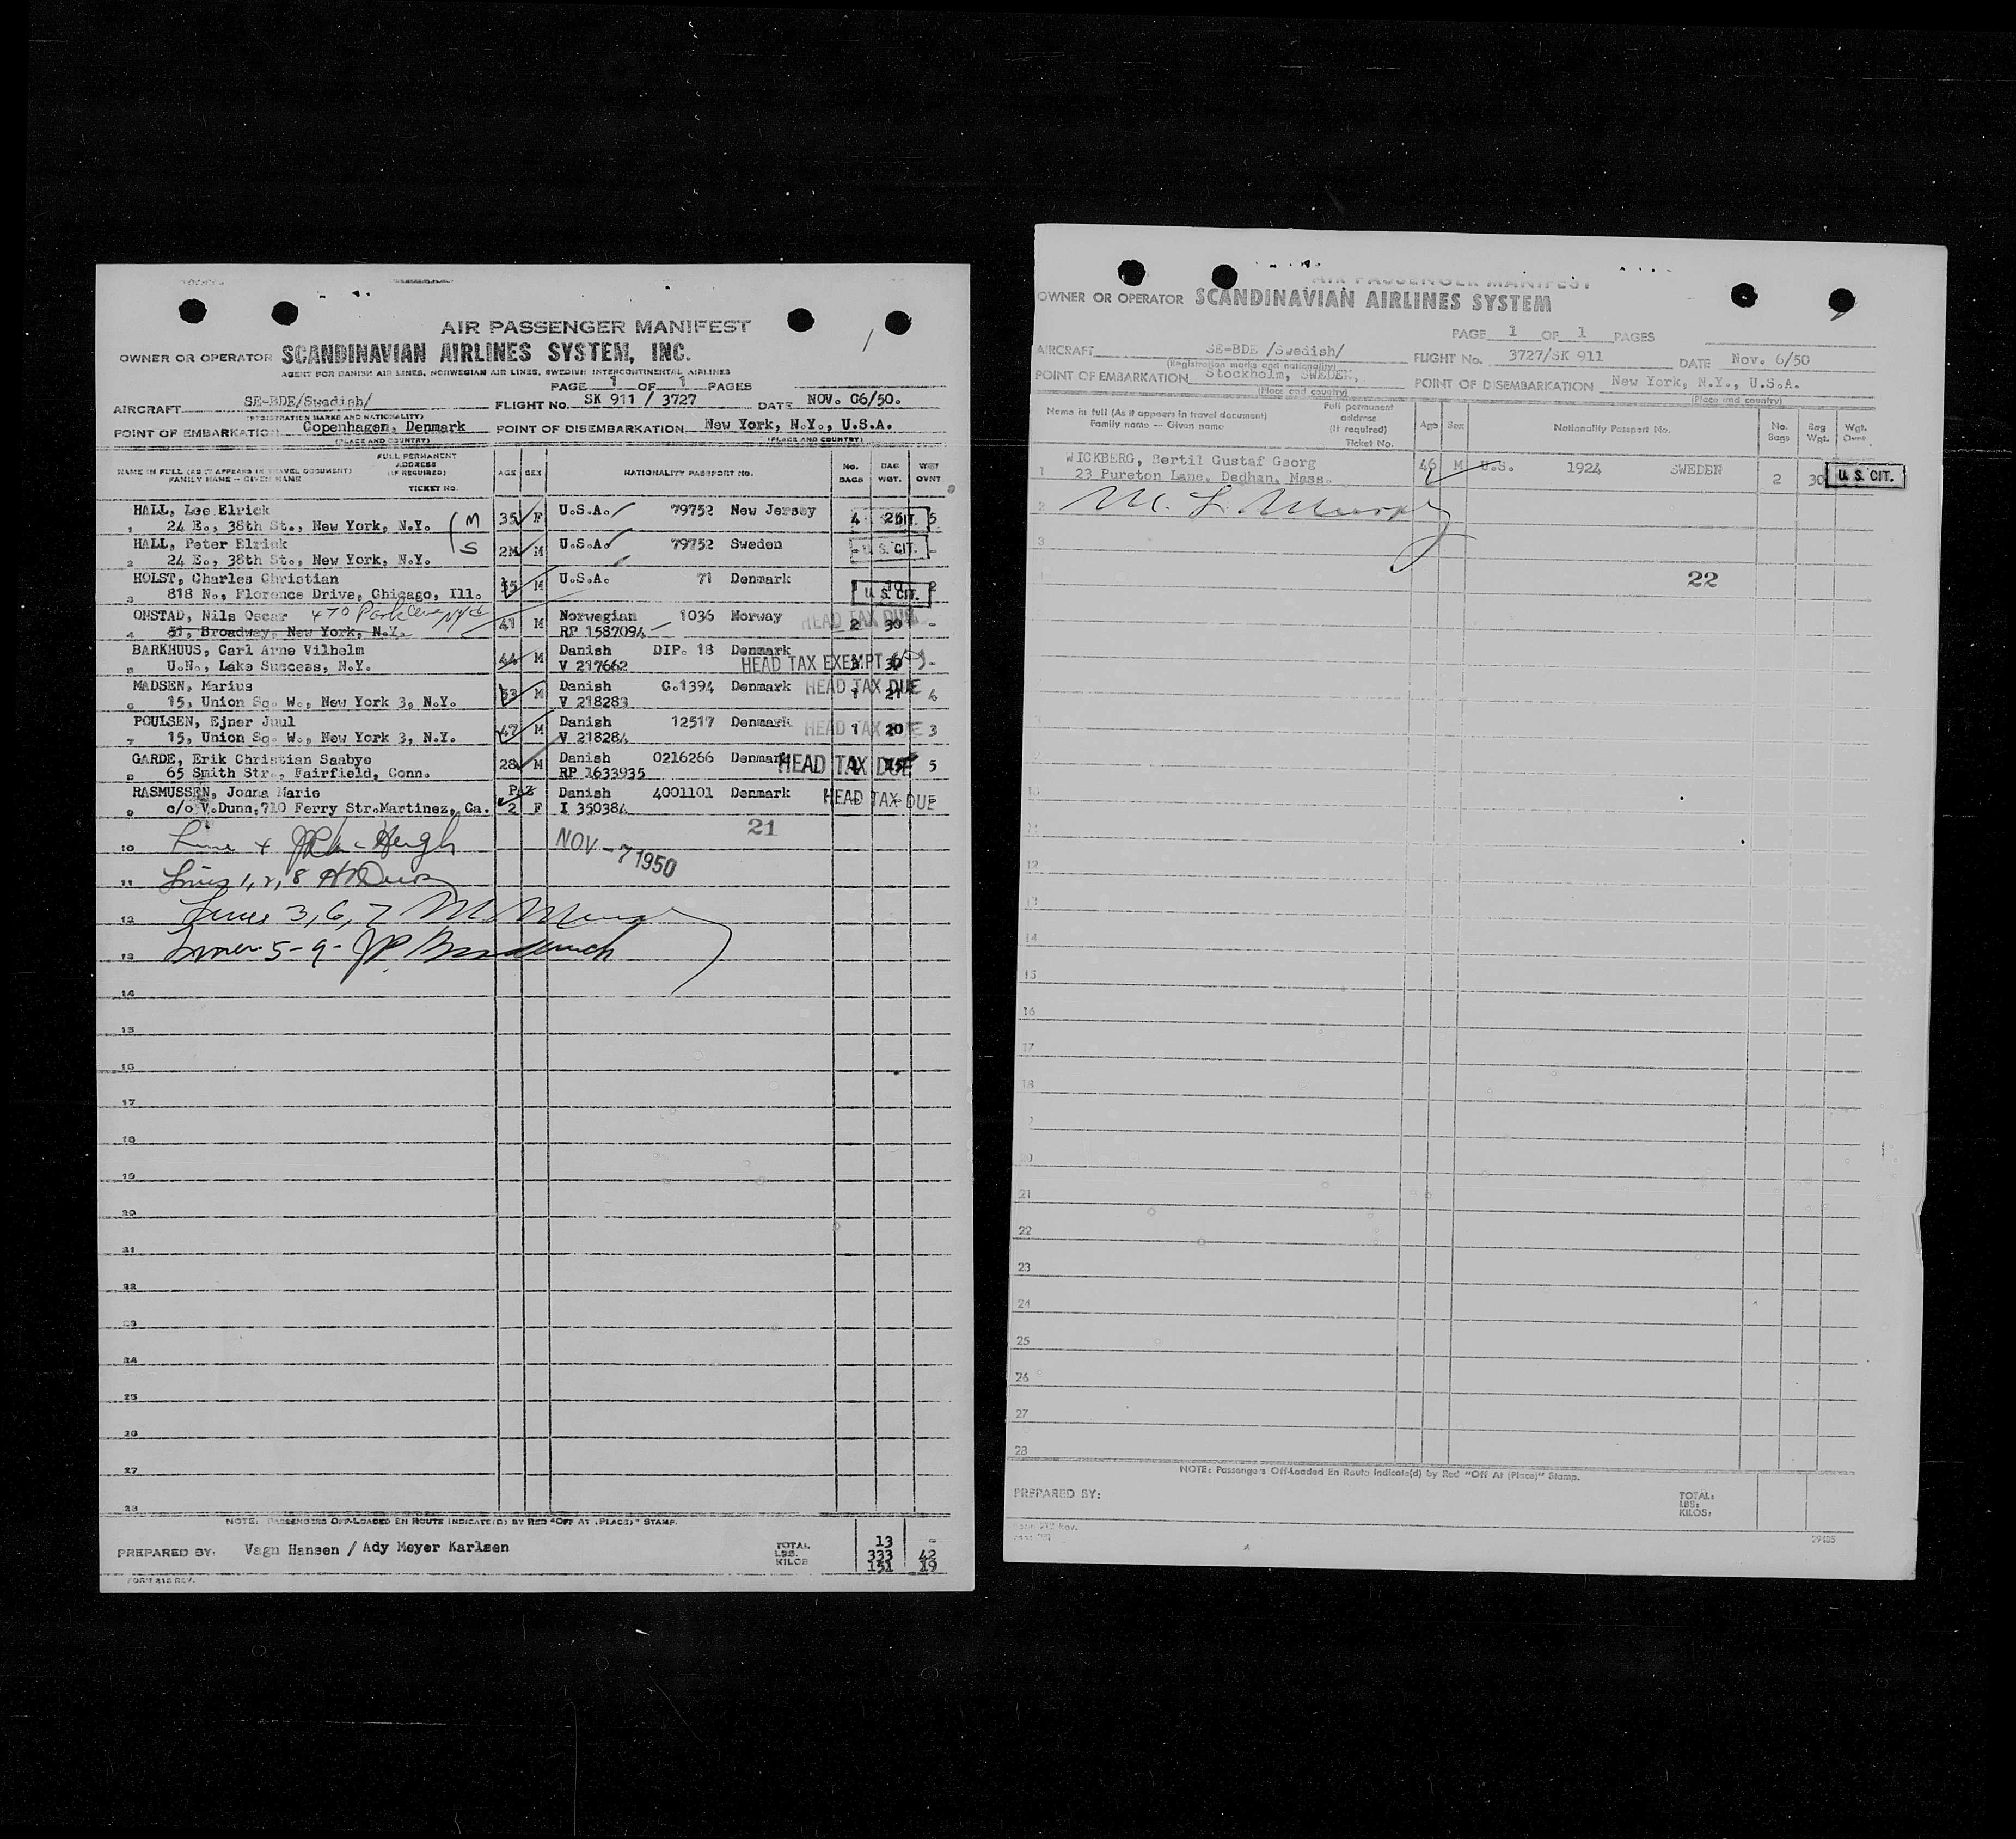 AIR PASSENGER MANIFEST
OWNER OR OPERATOR SCANDINAVIAN AIRLINES SYSTEM, INC.
AGENT FOR DANISH AIR LINES, NORWEGIAN AIR LINES, SWEDISH INTERCONTINENTAL AIRLINES
PAGE 1 OF 1 PAGES
AIRCRAFT SE-BDE/Swedish/ FLIGHT No. SK 911 / 3727 DATE NOV. 06/50.
(REGISTRATION MARKS AND NATIONALITY)
POINT OF EMBARKATION Copenhagen, Denmark POINT OF DISEMBARKATION New York, N.Y., U.S.A.
(PLACE AND COUNTRY) (PLACE AND COUNTRY)
NAME IN FULL (AS IT APPEARS IN TRAVEL DOCUMENT) FAMILY NAME — GIVEN NAME FULL PERMANENT ADDRESS (IF REQUIRED) TICKET NO. AGE SEX NATIONALITY PASSPORT NO. No. BAGS BAG WGT. WGT OVNT
HALL, Lee Elrick (M 35 F U.S.A. 79752 New Jersey 4 5
1 24 E., 38th St., New York, N.Y.
HALL, Peter Elrick (S 2M M U.S.A. 79752 Sweden - U. S. CIT. -
2 24 E., 38th St., New York, N.Y.
HOLST, Charles Christian M U.S.A. 71 Denmark U. S. CIT.
3 818 N., Florence Drive, Chicago, Ill.
ONSTAD, Nils Oscar 470 Park Ave 41 M Norwegian 1036 Norway HEAD TAX DUE 2 30 -
4 51, Broadway, New York, N.Y. RP 1587094
BARKHUUS, Carl Arne Vilhelm 44 M Danish DIP. 18 Denmark
5 U.N., Lake Success, N.Y. V 217662 HEAD TAX EXEMPT
MADSEN, Marius 53 M Danish G.1394 Denmark HEAD TAX DUE 1 21 4
6 15, Union Sq. W., New York 3, N.Y. V 218283
POULSEN, Ejner Juul 47 M Danish 12517 Denmark HEAD TAX DUE 1 20 3
7 15, Union Sq. W., New York 3, N.Y. V 218284
GARDE, Erik Christian Saabye 28 M Danish 0216266 Denmark HEAD TAX DUE 5
8 65 Smith Str., Fairfield, Conn. RP 1633935
RASMUSSEN, Jonna Marie Danish 4001101 Denmark HEAD TAX DUE
9 c/o V.Dunn,710 Ferry Str.Martinez, Ca. 2 F I 350384
21
10 Line 4
NOV -7 1950
11 Lines 1, 2, 8
12 Lines 3, 6, 7
13 5-9-
14
15
16
17
18
19
20
21
22
23
24
25
26
27
28
NOTE: PASSENGERS OFF-LOADED EN ROUTE INDICATE(D) BY RED "OFF AT (PLACE)" STAMP.
PREPARED BY: Vagn Hansen / Ady Meyer Karlsen
TOTAL 13 -
LBS. 333 42
KILOS 151 19
FORM 218 REV.
AIR PASSENGER MANIFEST
OWNER OR OPERATOR SCANDINAVIAN AIRLINES SYSTEM
PAGE 1 OF 1 PAGES
AIRCRAFT SE-BDE /Swedish/ FLIGHT No. 3727/SK 911 DATE Nov. 6/50
(Registration marks and nationality)
POINT OF EMBARKATION Stockholm, SWEDEN, POINT OF DISEMBARKATION New York, N.Y., U.S.A.
(Place and country) (Place and country)
Name in full (As it appears in travel document) Family name — Given name Full permanent address (if required) Ticket No. Age Sex Nationality Passport No. No. Bags Bag Wgt. Wgt. Ovnt
WICKBERG, Bertil Gustaf Georg 46 M U.S. 1924 SWEDEN 2 30 U. S. CIT.
1 23 Pureton Lane, Dedhan, Mass.
2 M. L. Murphy
3
22
10
11
12
13
14
15
16
17
18
20
21
22
23
24
25
26
27
28
NOTE: Passengers Off-Loaded En Route Indicate(d) by Red "Off At (Place)" Stamp.
PREPARED BY:
TOTAL:
LBS:
KILOS: